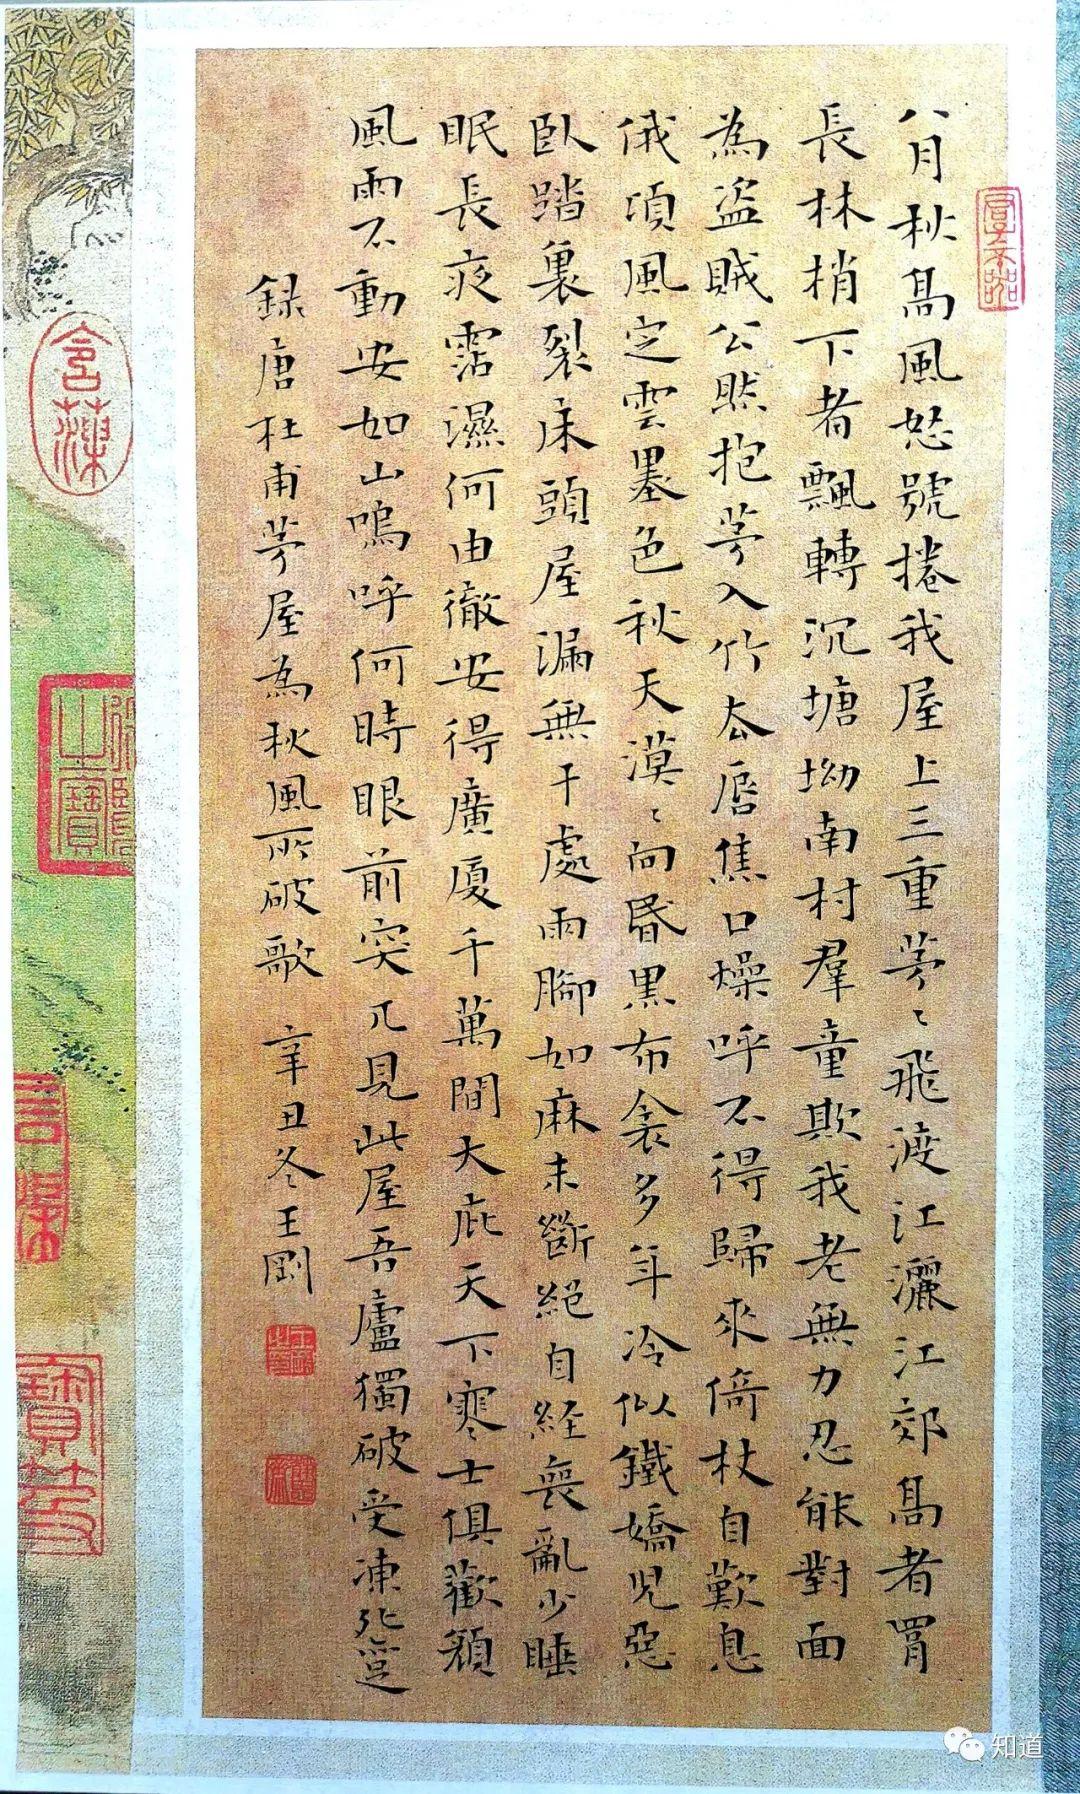 八月秋高風怒號捲我屋上三重茅〻飛渡江灑江郊高者罥
長林梢下者飄轉沉塘坳南村羣童欺我老無力忍能對面
為盗賊公然抱茅入竹去唇焦口燥呼不得歸來倚杖自歎息
俄頃風定雲墨色秋天漠〻向昏黑布衾多年冷似鐵嬌兒惡
臥踏裏裂床頭屋漏無干處雨腳如麻未斷絕自經喪亂少睡
眠長夜霑濕何由徹安得廣廈千萬間大庇天下寒士俱歡顏
風雨不動安如山嗚呼何時眼前突兀見此屋吾廬獨破受凍死亦足
録唐杜甫茅屋為秋風所破歌 辛丑冬王剛
知道